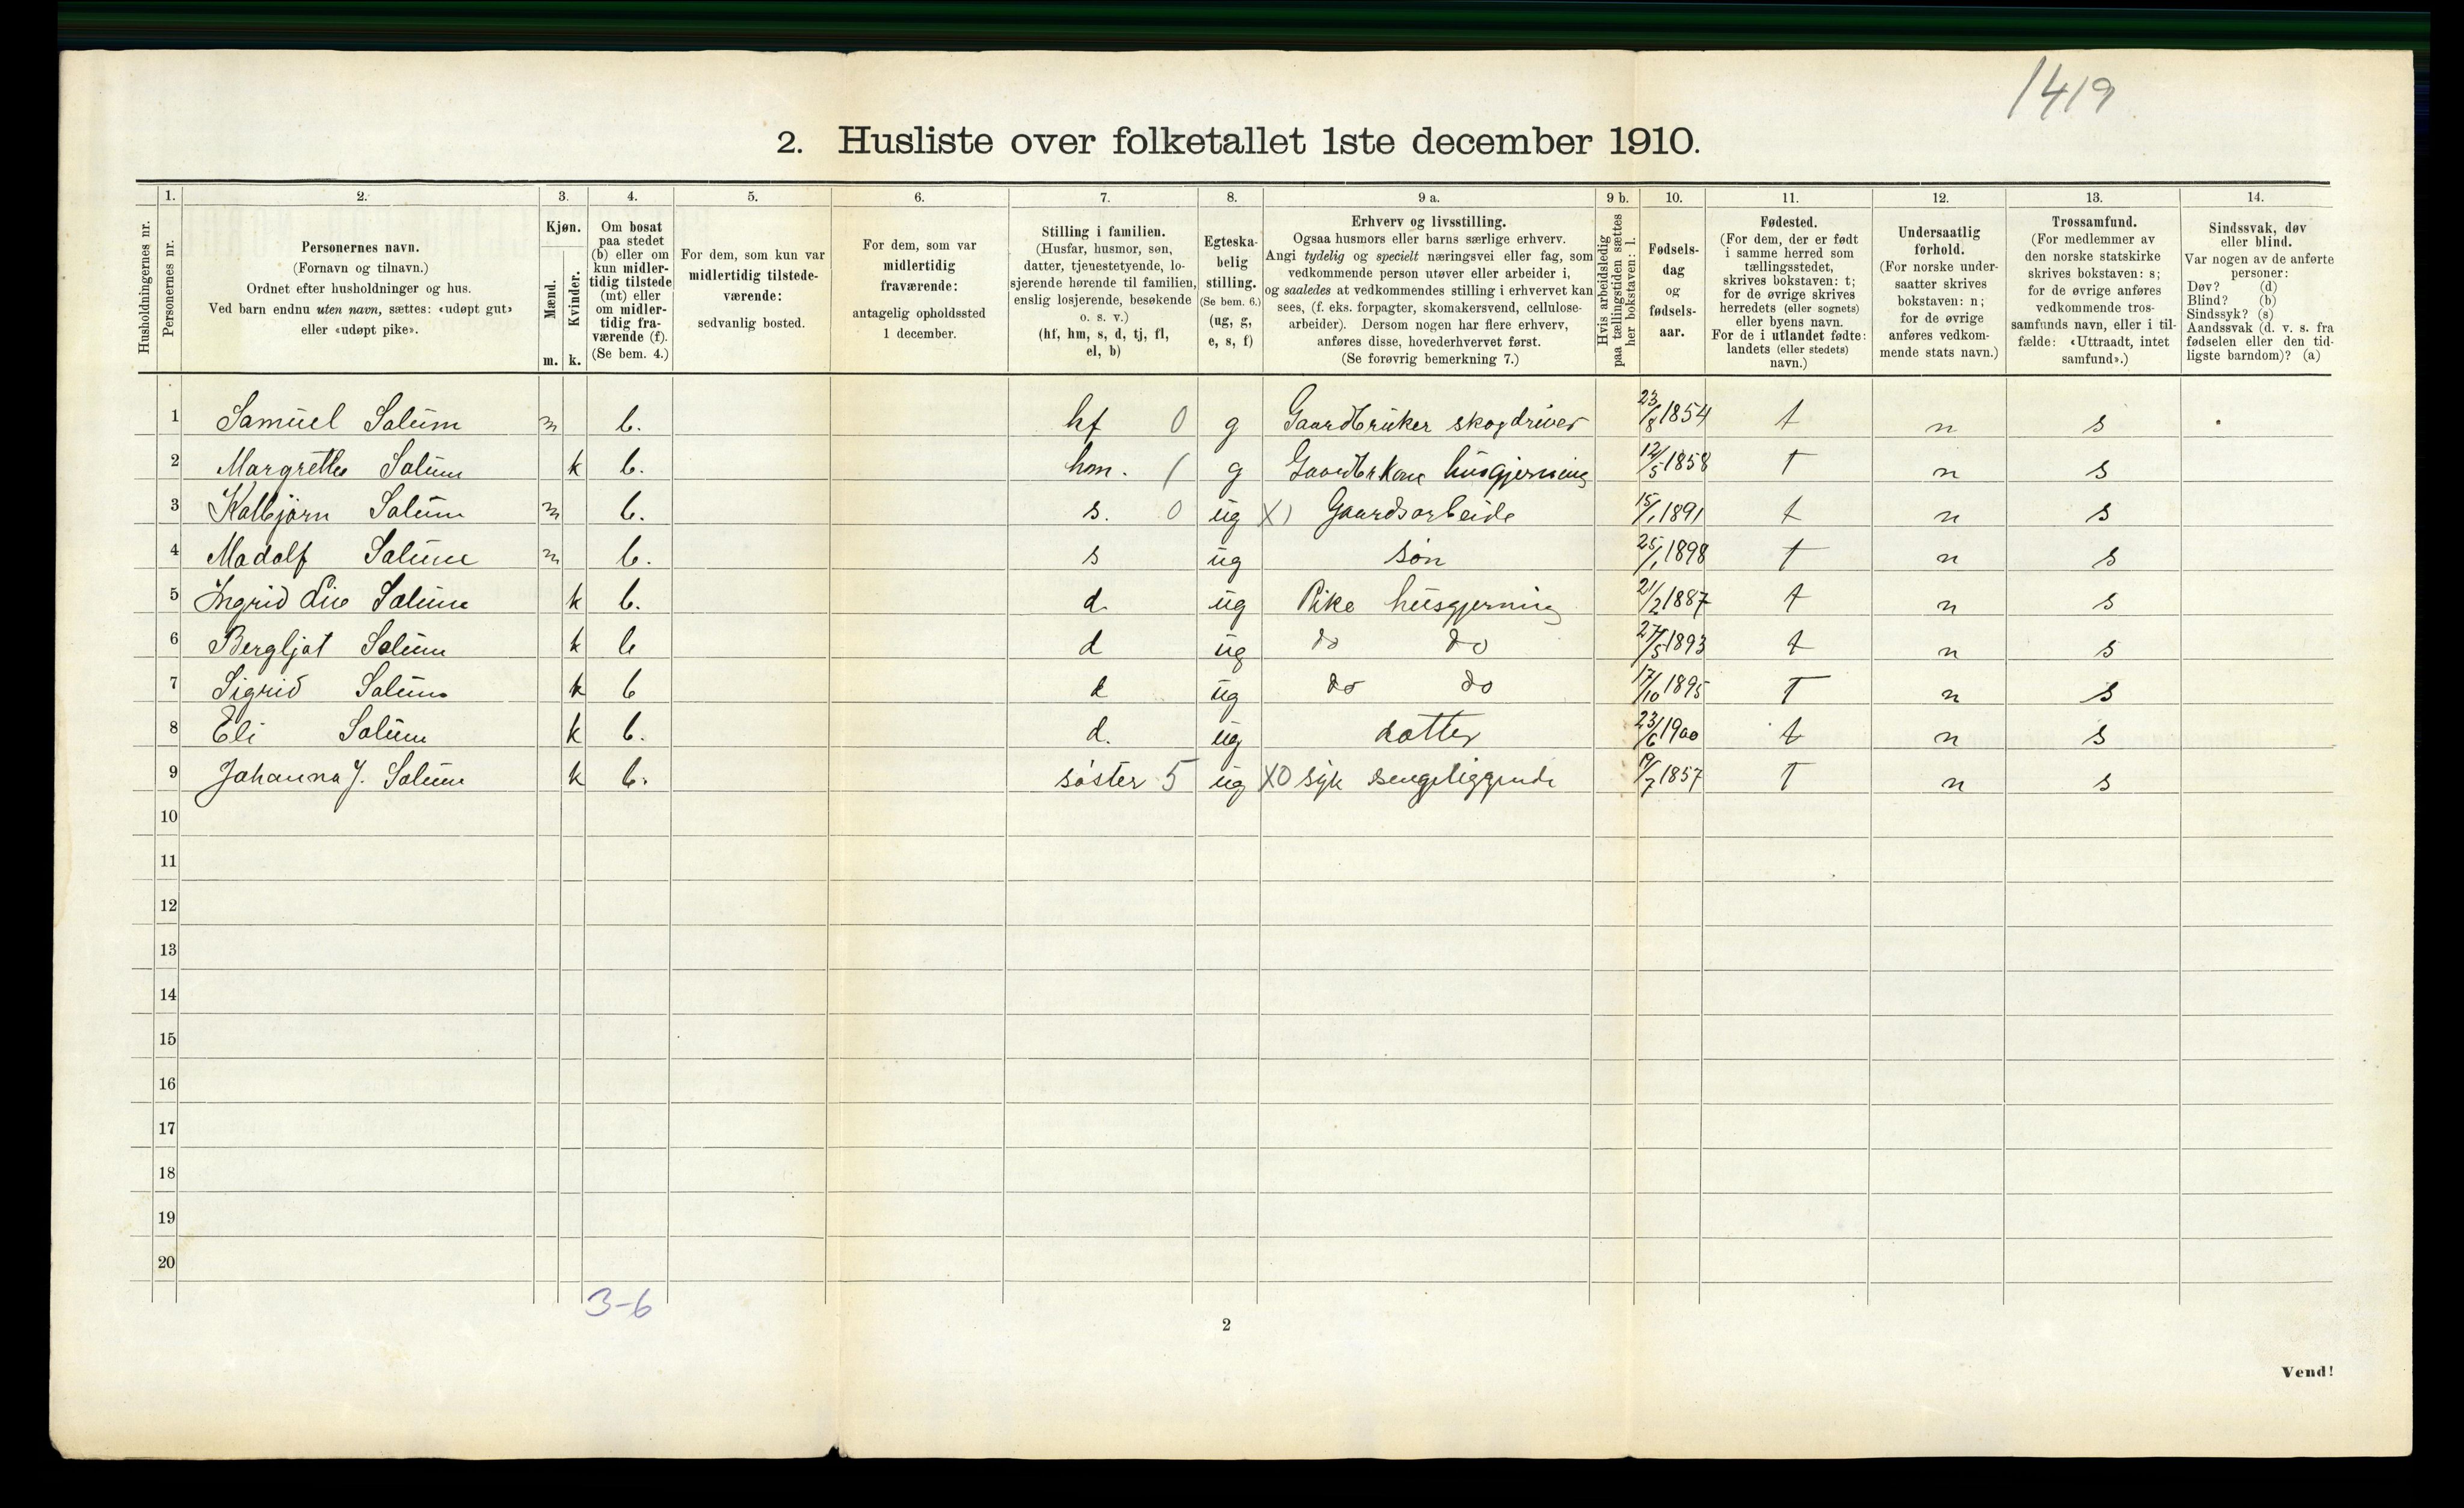 1419
2. Husliste over folketallet 1ste december 1910.
Husholdningernes nr.
1.
Personernes nr.
2.
Personernes navn.
(Fornavn og tilnavn.)
Ordnet efter husholdninger og hus.
Ved barn endnu uten navn, sættes: «udøpt gut»
eller «udøpt pike».
3.
Kjøn.
Mænd.
Kvinder.
m. k.
4.
Om bosat
paa stedet
(b) eller om
kun midler-
tidig tilstede
(mt) eller
om midler-
tidig fra-
værende (f).
(Se bem. 4.)
5.
For dem, som kun var
midlertidig tilstede-
værende:
sedvanlig bosted.
6.
For dem, som var
midlertidig
fraværende:
antagelig opholdssted
1 december.
7.
Stilling i familien.
(Husfar, husmor, søn,
datter, tjenestetyende, lo-
sjerende hørende til familien,
enslig losjerende, besøkende
o. s. v.)
(hf, hm, s, d, tj, fl,
el, b)
8.
Egteska-
belig
stilling.
(Se bem. 6.)
(ug, g,
e, s, f)
9 a.
Erhverv og livsstilling.
Ogsaa husmors eller barns særlige erhverv.
Angi tydelig og specielt næringsvei eller fag, som
vedkommende person utøver eller arbeider i,
og saaledes at vedkommendes stilling i erhvervet kan
sees, (f. eks. forpagter, skomakersvend, cellulose-
arbeider). Dersom nogen har flere erhverv,
anføres disse, hovederhvervet først.
(Se forøvrig bemerkning 7.)
9 b.
Hvis arbeidsledig
paa tællingstiden sættes
her bokstaven: l.
10.
Fødsels-
dag
og
fødsels-
aar.
11.
Fødested.
(For dem, der er født
i samme herred som
tællingsstedet,
skrives bokstaven: t;
for de øvrige skrives
herredets (eller sognets)
eller byens navn.
For de i utlandet fødte:
landets (eller stedets)
navn.)
12.
Undersaatlig
forhold.
(For norske under-
saatter skrives
bokstaven: n;
for de øvrige
anføres vedkom-
mende stats navn.)
13.
Trossamfund.
(For medlemmer av
den norske statskirke
skrives bokstaven: s;
for de øvrige anføres
vedkommende tros-
samfunds navn, eller i til-
fælde: «Uttraadt, intet
samfund».)
14.
Sindssvak, døv
eller blind.
Var nogen av de anførte
personer:
Døv? (d)
Blind? (b)
Sindssyk? (s)
Aandssvak (d. v. s. fra
fødselen eller den tid-
ligste barndom)? (a)
1 Samuel Salum m b. hf 0 g Gaardbruker skogdriver 23/8 1854 t n s
2 Margrethe Salum k b. hm. 1 g Gaardbrkone husgjerning 12/5 1858 T n s
3 Kolbjørn Salum m b. s. 0 ug X) Gaardsarbeide 15/1 1891 t n s
4 Madolf Salum m b. s ug søn 25/1 1898 T n s
5 Ingrid Lie Salum k b. d. ug Pike husgjerning 21/2 1887 t n s
6 Bergljot Salum k b d ug do do 27/5 1893 t n s
7 Sigrid Salum k b d ug do do 17/10 1895 T n s
8 Eli Salum k b. d. ug datter 23/6 1900 t n s
9 Johanna J. Salum k b. søster 5 ug XO syk sengeliggende 9/7 1857 T n s
10
11
12
13
14
15
16
17
18
19
20
3-6
2
Vend!